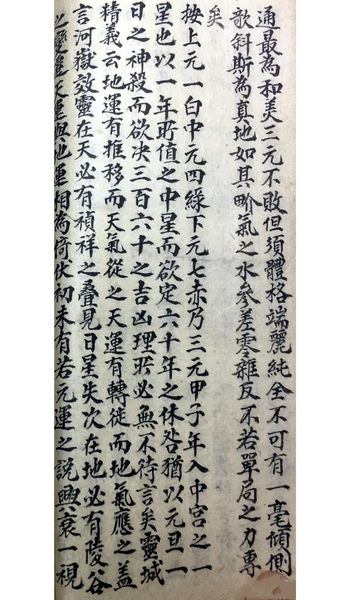 通最為和美三元不敗但須體格端麗純全不可有一毫傾側
欹斜斯為真地如其節氣之水參差零雜反不若單局之力專
矣
按上元一白中元四綠下元七赤乃三元甲子年入中宮之一
星也以一年所值之中星而欲定六十年之休咎猶以元旦一
日之神殺而欲决三百六十之吉凶理所必無不待言矣靈城
精義云地運有推移而天氣從之天運有轉徙而地氣應之蓋
言河嶽效靈在天必有禎祥之叠見日星失次在地必有陵谷
之變遷天運與地運相為倚伏初未有若元運之說興衰一視